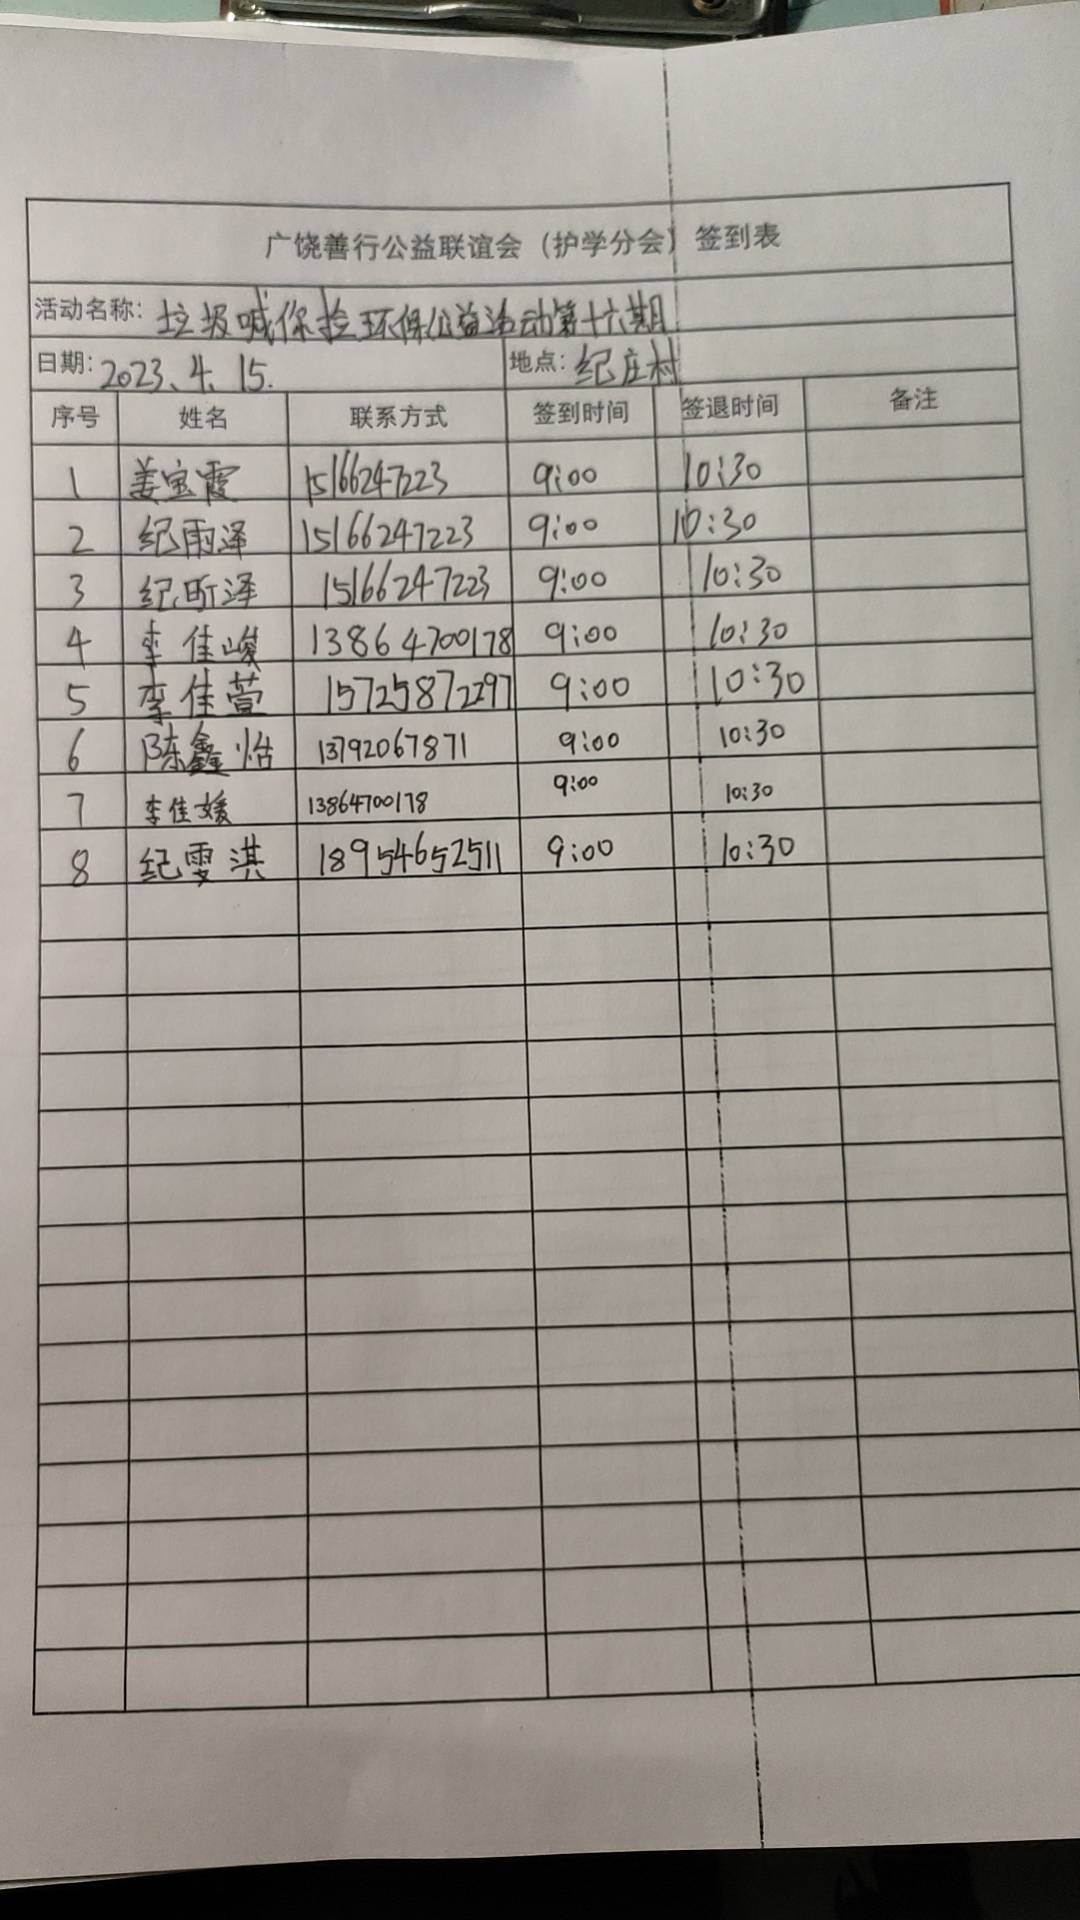 广饶善行公益联谊会（护学分会）签到表
活动名称：垃圾喊你捡环保公益活动第十六期
日期：2023.4.15. 地点：纪庄村
序号 姓名 联系方式 签到时间 签退时间 备注
1 姜宝霞 15166247223 9:00 10:30
2 纪雨泽 15166247223 9:00 10:30
3 纪昕泽 15166247223 9:00 10:30
4 李佳峻 13864700178 9:00 10:30
5 李佳萱 15725872297 9:00 10:30
6 陈鑫怡 13792067871 9:00 10:30
7 李佳媛 13864700178 9:00 10:30
8 纪雯淇 18954652511 9:00 10:30